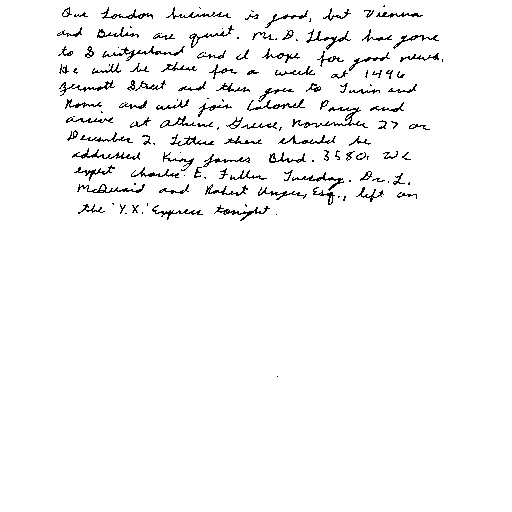 Our London business is good, but Vienna
and Berlin are quiet. Mr. D. Lloyd has gone
to Switzerland and I hope for good news.
He will be there for a week at 1496
Zermott Street and then goes to Turin and
Rome and will join Colonel Parry and
arrive at Athens, Greece, November 27 or
December 2. Letters there should be
addressed King James Blvd. 3580. We
expect Charles E. Fuller Tuesday. Dr. L.
McQuaid and Robert Unger, Esq., left on
the 'Y.X.' Express tonight.